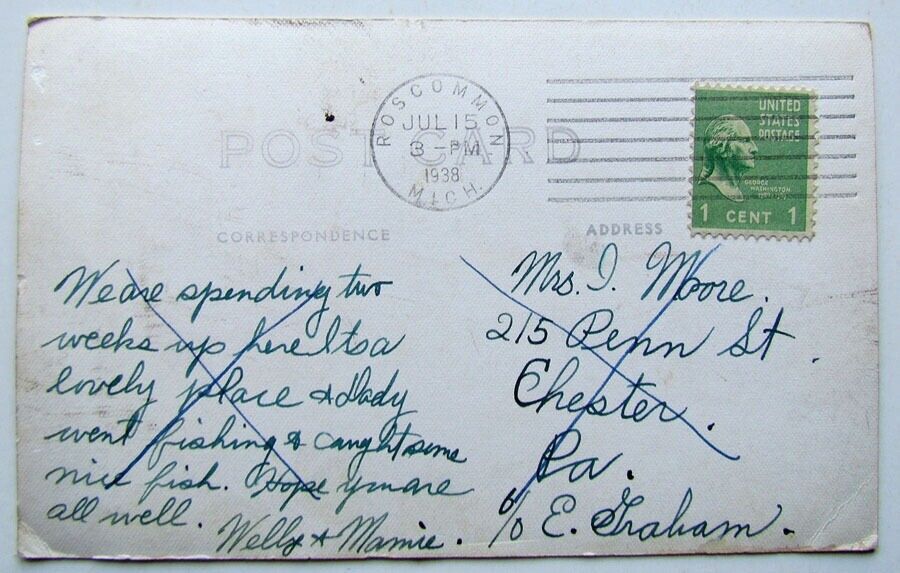 POST CARD
ROSCOMMON
JUL 15
3 - PM
1938
MICH.
UNITED
STATES
POSTAGE
GEORGE
WASHINGTON
1 CENT 1
CORRESPONDENCE
ADDRESS
We are spending two
weeks up here Its a
lovely place & Dady
went fishing & caught some
nice fish. Hope you are
all well.
Welly & Mamie.
Mrs. I. Moore.
215 Penn St.
Chester.
Pa.
c/o E. Graham.